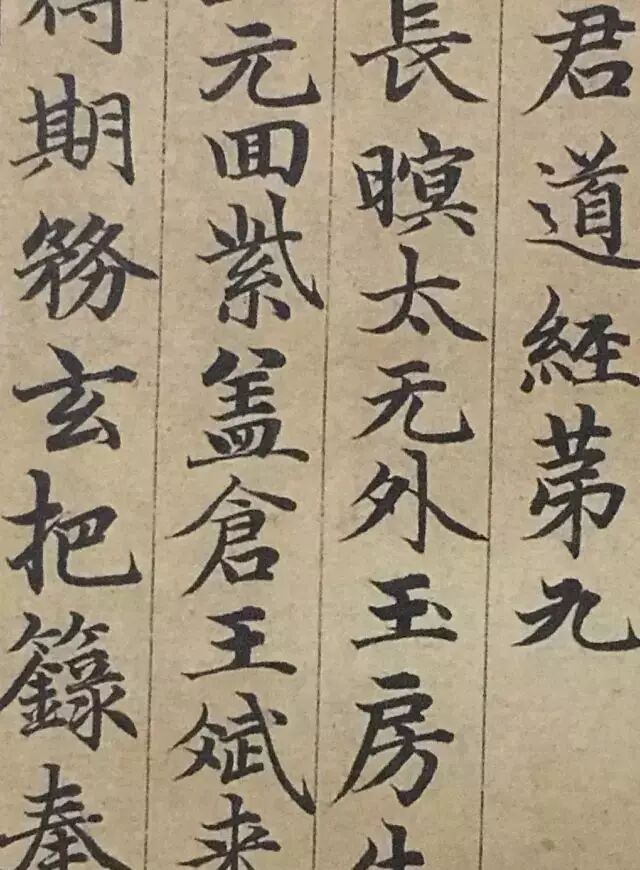 君道經苐九
長暝太无外玉房
元回紫盖倉王斌来
待期務玄把籙奉